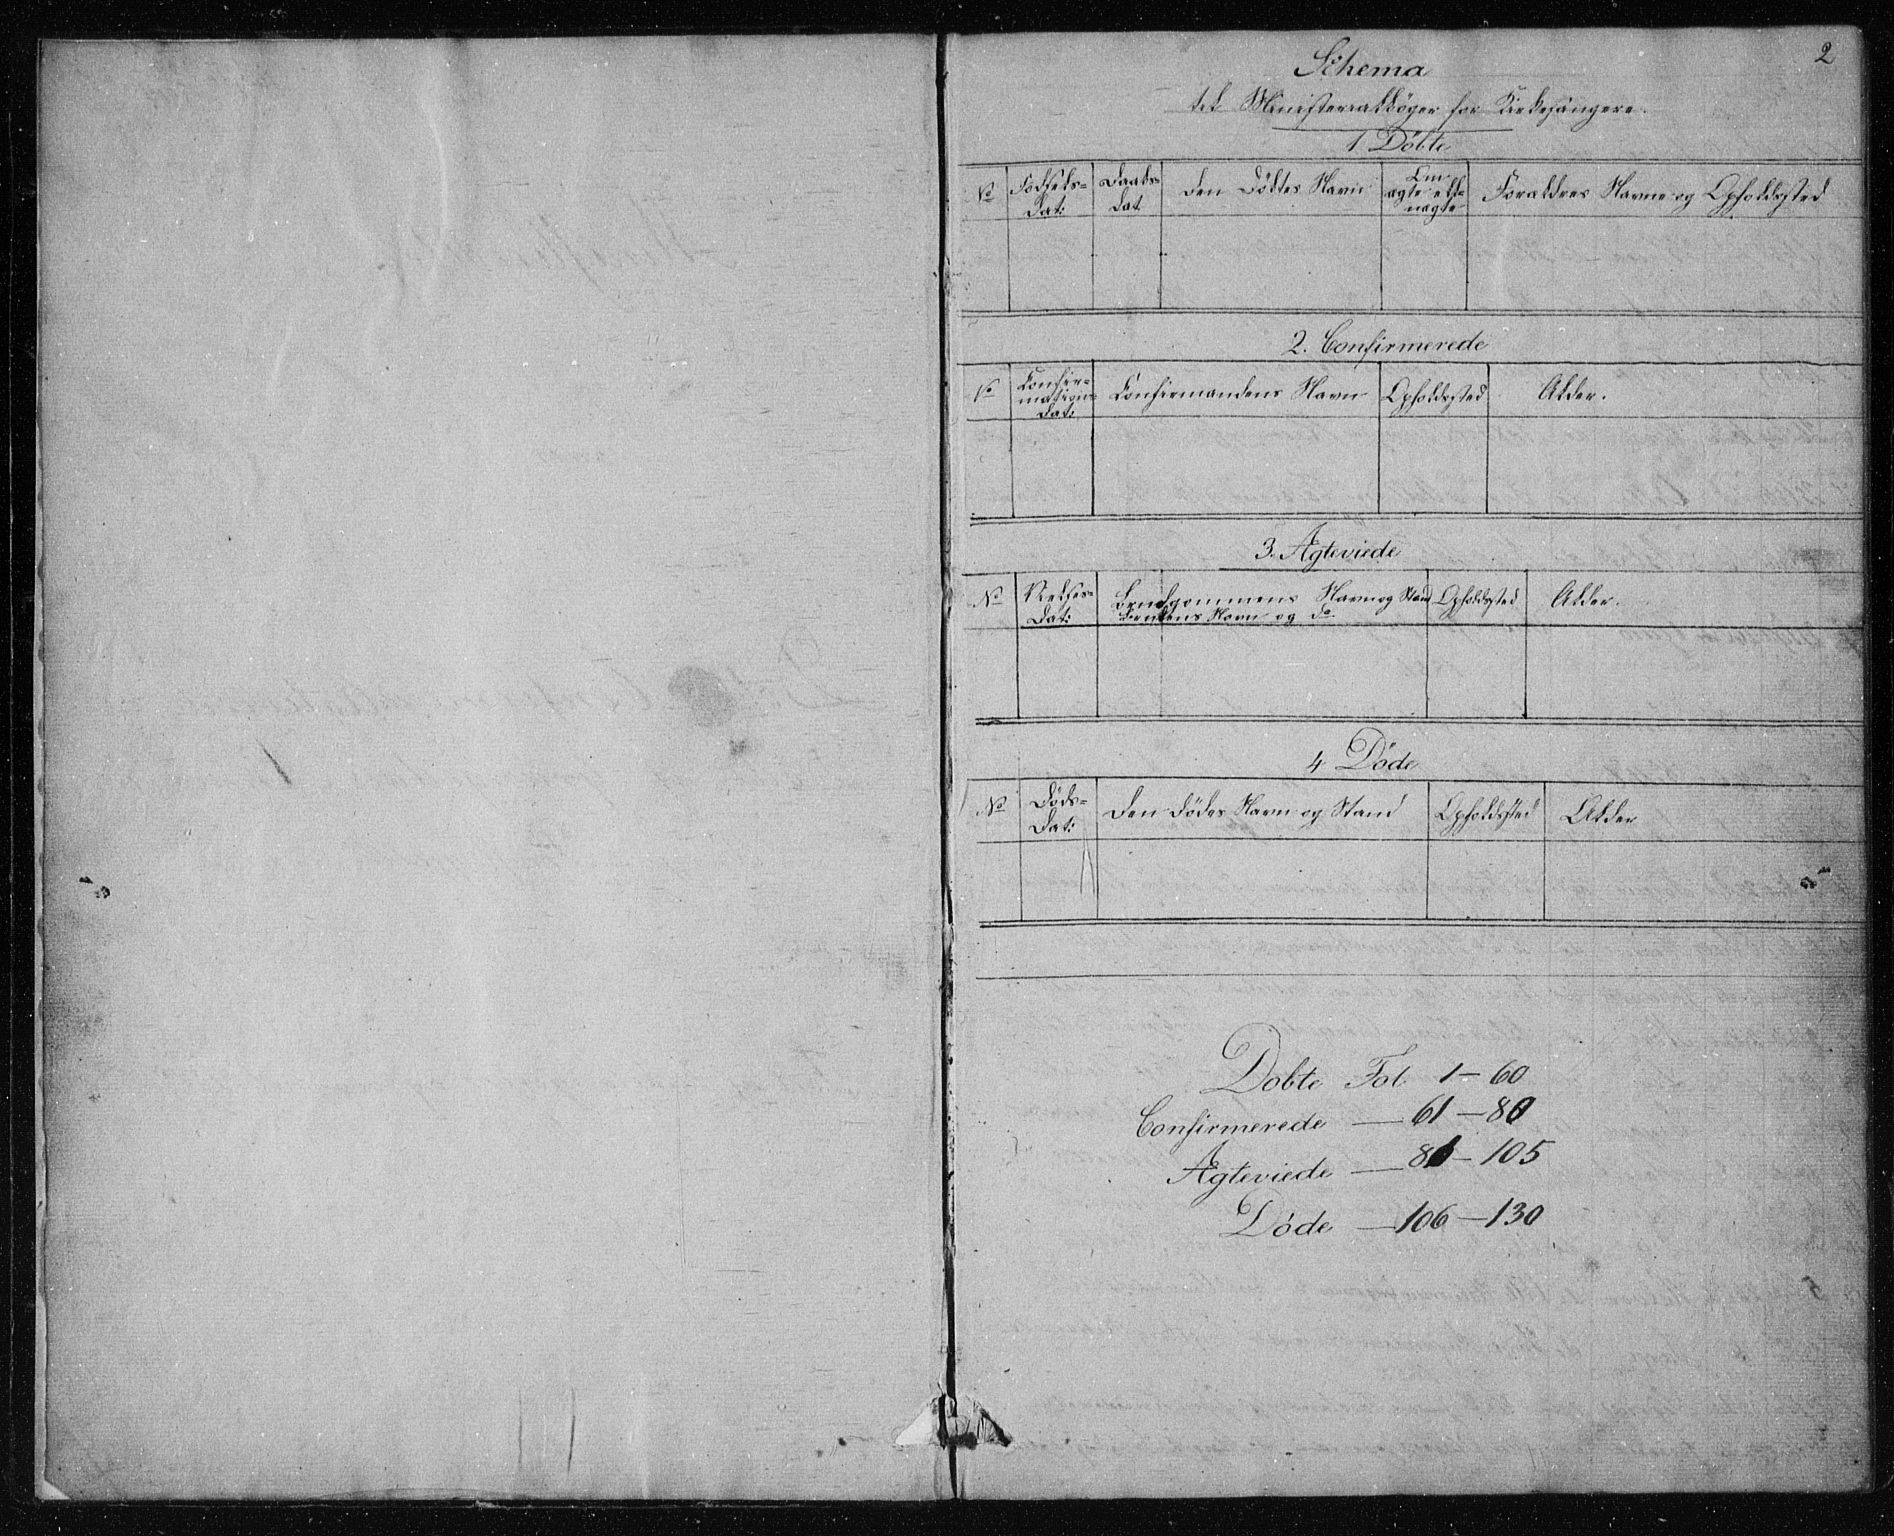 2
Schema
til Ministerialbøger for Kirkesangere.
1 Döbte
No
Födsels-
Dat:
Daabs-
Dat.
Den Döbtes Navn
Om
ægte ell:
uægte
Forældres Navne og Opholdssted
2. Confirmerede
No
Confir-
mations-
Dat:
Confirmandens Navn
Opholdssted
Alder.
3. Ægteviede
No
Vielses-
Dat:
Brudgommens Navn og Stand
Brudens Navn og Do
Opholdssted
Alder.
4 Døde
No
Døds-
Dat:
Den Dødes Navn og Stand
Opholdssted
Alder
Dobte Fol 1-60
Confirmerede — 61-80
Ægteviede — 81-105
Døde — 106-130